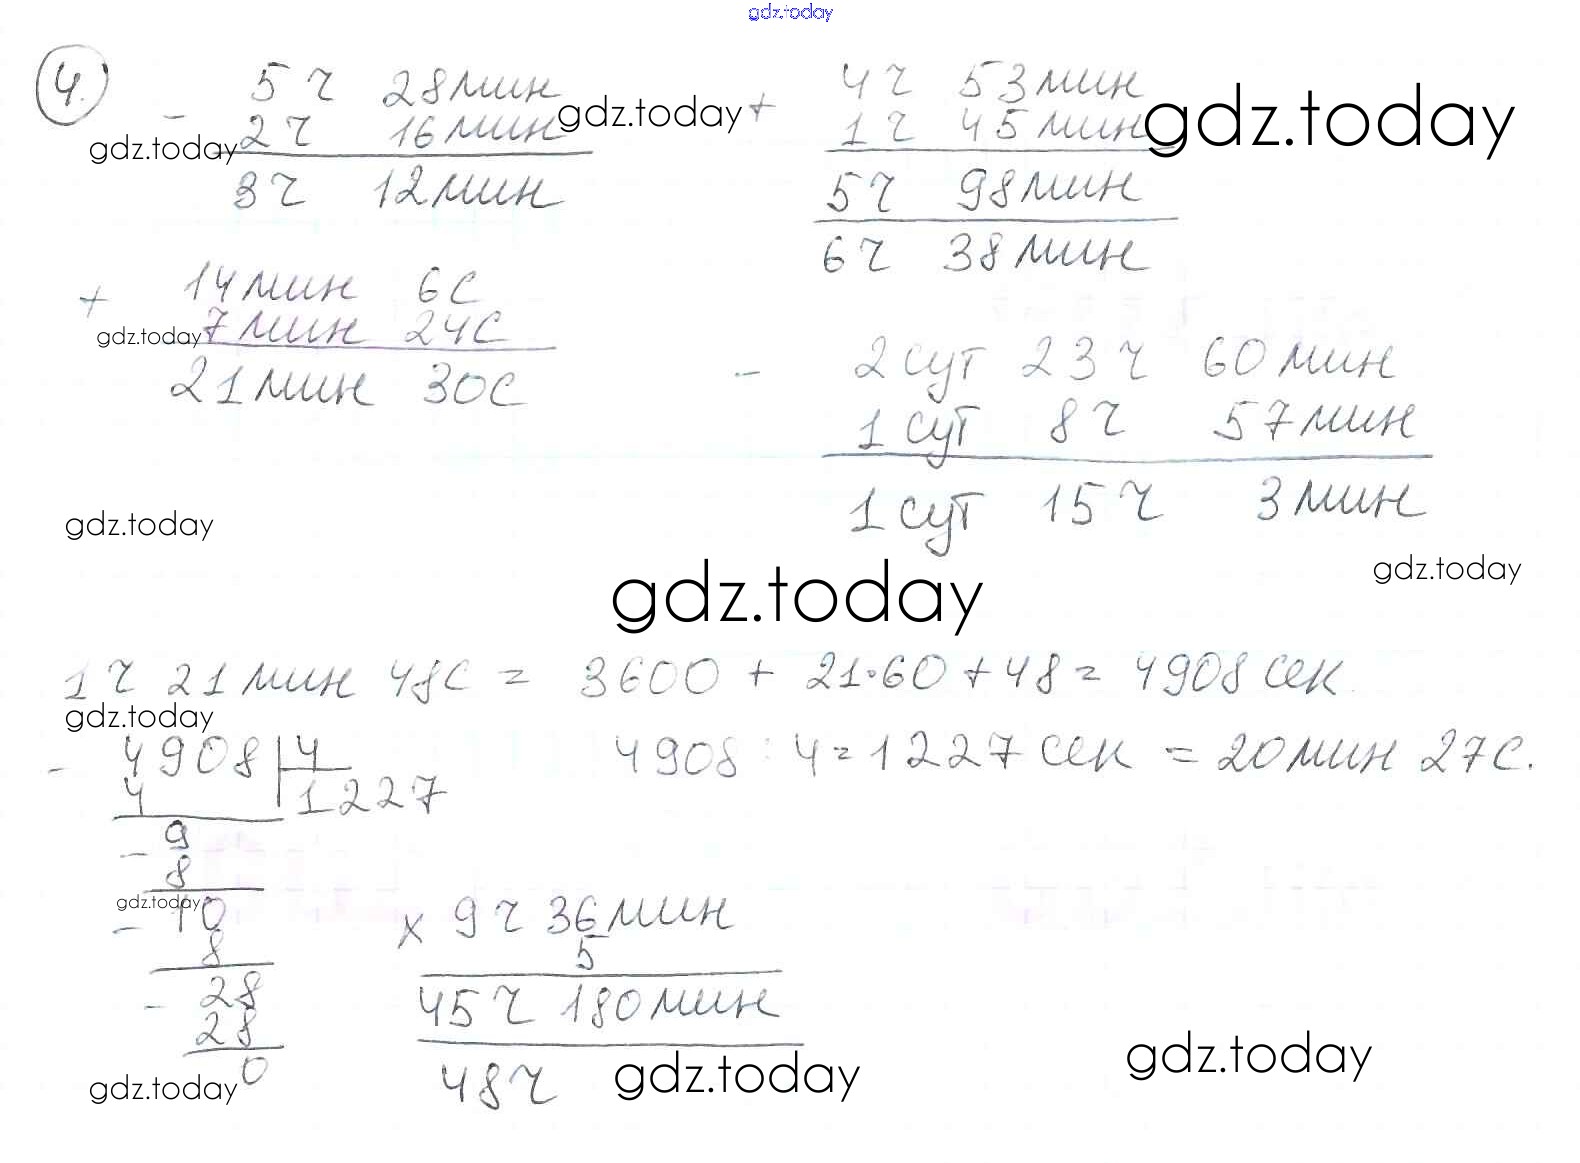 gdz.today
4.
- 5 ч 28 мин
2 ч 16 мин
3 ч 12 мин
gdz.today
gdz.today
+ 4 ч 53 мин
1 ч 45 мин
5 ч 98 мин
6 ч 38 мин
gdz.today
+ 14 мин 6 с
7 мин 24 с
21 мин 30 с
gdz.today
- 2 сут 23 ч 60 мин
1 сут 8 ч 57 мин
1 сут 15 ч 3 мин
gdz.today
gdz.today
gdz.today
1 ч 21 мин 48 с = 3600 + 21·60 + 48 = 4908 сек
gdz.today
- 4908 | 4
4 1227
- 9
8
- 10
8
- 28
28
0
gdz.today
gdz.today
4908 : 4 = 1227 сек = 20 мин 27 с.
x 9 ч 36 мин
5
45 ч 180 мин
48 ч
gdz.today
gdz.today